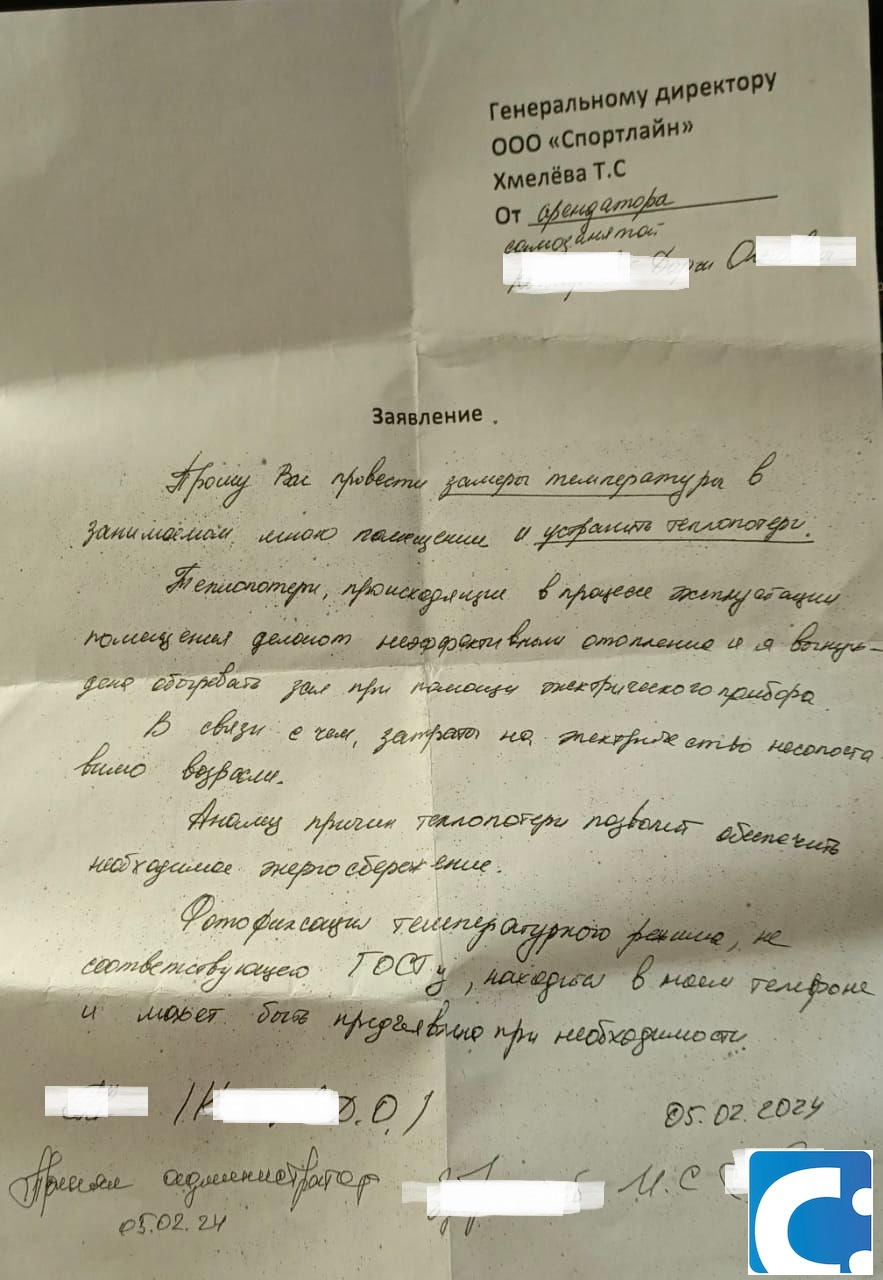 Генеральному директору
ООО «Спортлайн»
Хмелёва Т.С
От арендатора
самозанятой
Заявление.
Прошу Вас провести замеры температуры в
занимаемом мною помещении и устранить теплопотери.
Теплопотери, происходящие в процессе эксплуатации
помещения делают неэффективным отопление и я вынуж-
дена обогревать зал при помощи электрического прибора
В связи с чем, затраты на электричество несопоста-
вимо возрасли.
Анализ причин теплопотери позволит обеспечить
необходимое энергосбережение.
Фотофиксация температурного режима, не
соответствующего ГОСТу, находится в моем телефоне
и может быть предъявлена при необходимости.
Д.О.)
05.02.2024
Принял администратор
М.С
05.02.24